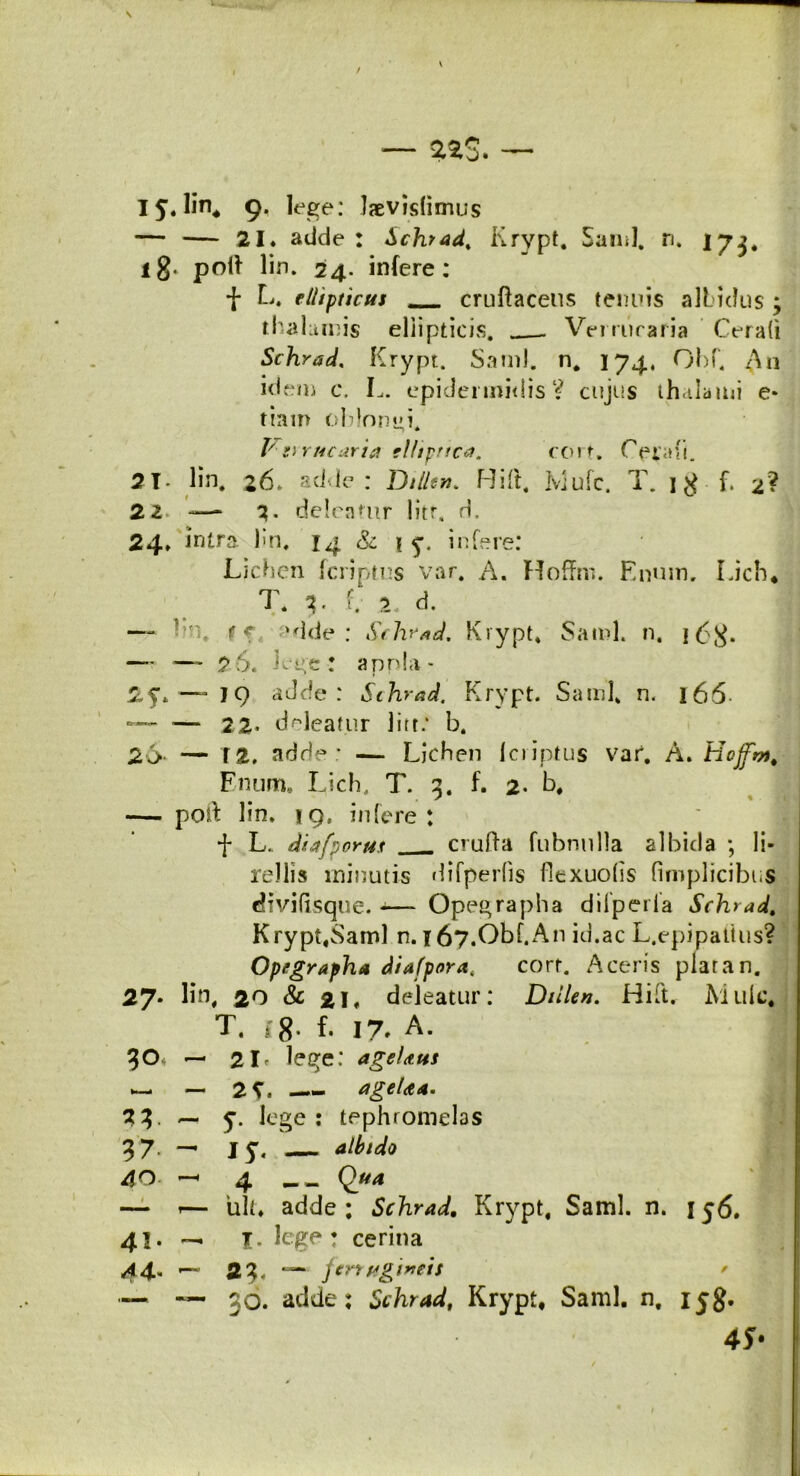 — 228. —
15. lin. 9. lege: lævisſimus
— — 21. adde: Schrad. Krypt. Saml. n. 173.
18. poſt lin. 24. inſere:
† L. ellipticus __ cruſtaceus tenuis albidus;
thalamis ellipticis. __ Verrucaria Ceraſi
Schrad. Krypt. Saml. n. 174. Obſ. An
idem c. L. epidermidis? cujus thalami e-
tiam oblongi.
Verrucaria elliptica. cort. Ceraſi.
21. lin. 26. adde: Dillen. Hiſt. Muſc. T. 18 f. 2?
22 — 3. deleatur litt. d.
24. intra lin. 14 & 15. inſere:
Lichen ſcriptus var. A. Hoffm. Enum. Lich.
T. 3. f. 2. d.
— lin. adde: Schrad. Krypt. Saml. n. 168.
— — 26. lege: appla-
25. — 19 adde: Schrad. Krypt. Saml. n. 166.
— — 22. deleatur litt: b.
26. — 12. adde: — Lichen ſcriptus var. A. Hoffm.
Enum. Lich. T. 3. f. 2. b.
— poſt lin. 19. inſere:
† L. diaſporus __ cruſta ſubnulla albida; li-
rellis minutis diſperſis flexuoſis ſimplicibus
diviſisque. — Opegrapha diſperſa Schrad.
Krypt. Saml n. 167. Obſ. An id. ac L. epipaſius?
Opegrapha diaſpora. cort. Aceris platan.
27. lin. 20 & 21. deleatur: Dillen. Hiſt. Muſc.
T. 18. f. 17. A.
30. — 21. lege: agelæus
— — 25. __ agelæa.
33. — 5. lege: tephromelas
37. — 15. __ albido
40 — 4 __ Qua
— — ult. adde: Schrad. Krypt. Saml. n. 156.
41. — 1. lege: cerina
44. — 23. — ferrugineis
— — 30. adde: Schrad. Krypt. Saml. n. 158.
45.